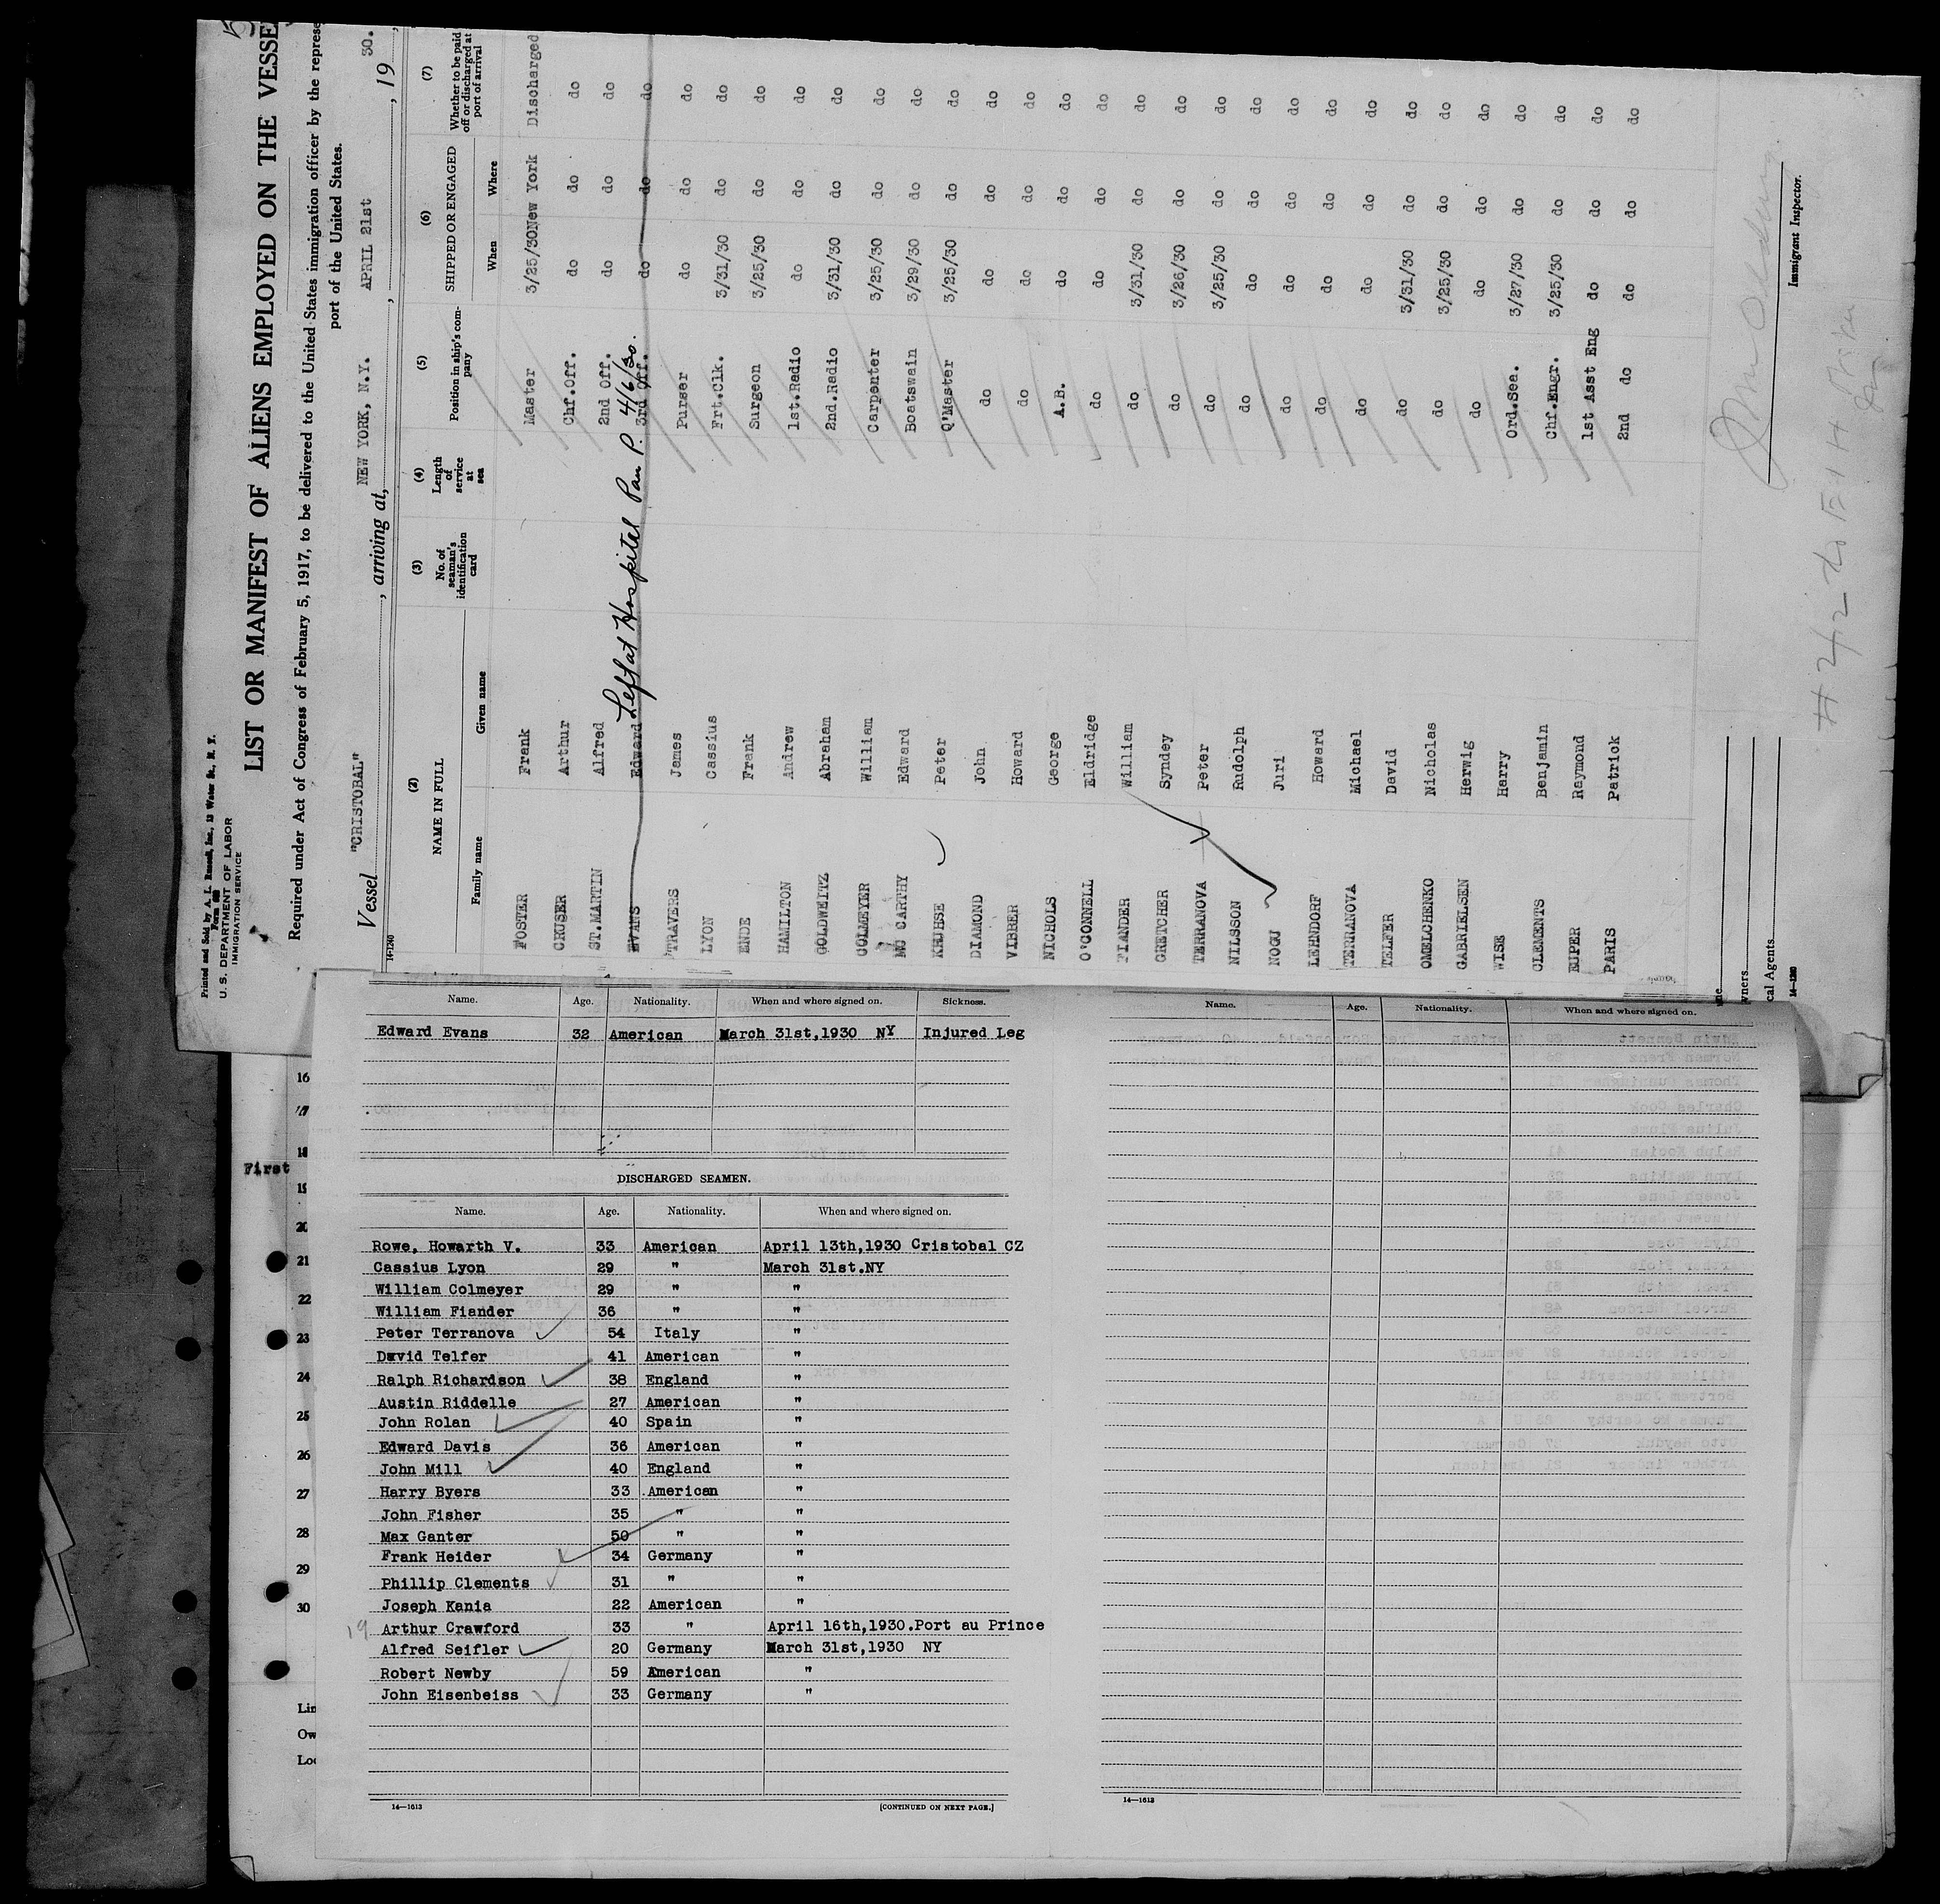 Printed and Sold by A. L. Russell, Inc., 12 Water St., N. Y.
U. S. DEPARTMENT OF LABOR
IMMIGRATION SERVICE
LIST OR MANIFEST OF ALIENS EMPLOYED ON THE VESSE
Required under Act of Congress of February 5, 1917, to be delivered to the United States immigration officer by the represe
port of the United States.
Vessel "CRISTOBAL", arriving at, NEW YORK, N.Y. APRIL 21st, 19 30.
14-1240
(2) (3) (4) (5) (6) (7)
NAME IN FULL No. of seaman's identification card Length of service at sea Position in ship's company SHIPPED OR ENGAGED Whether to be paid off or discharged at port of arrival
Family name Given name When Where
FOSTER Frank Master 3/25/30 New York Discharged
CRUSER Arthur Chf.Off. do do do
ST.MARTIN Alfred 2nd Off. do do do
EVANS Edward Left at Hospital Pan P. 4/6/30. 3rd Off. do do do
TRAVERS James Purser do do do
LYON Cassius Frt.Clk. 3/31/30 do do
ENDE Frank Surgeon 3/25/30 do do
HAMILTON Andrew 1st.Radio do do do
GOLDWEITZ Abraham 2nd.Radio 3/31/30 do do
COLMEYER William Carpenter 3/25/30 do do
MC CARTHY Edward Boatswain 3/29/30 do do
KRUHSE Peter Q'Master 3/25/30 do do
DIAMOND John do do do do
VIBBER Howard do do do do
NICHOLS George A.B. do do do
O'CONNELL Eldridge do do do do
FIANDER William do 3/31/30 do do
GRETCHER Syndey do 3/26/30 do do
TERRANOVA Peter do 3/25/30 do do
NILSSON Rudolph do do do do
NOGU Juri do do do do
LEHNDORF Howard do do do do
TERRANOVA Michael do do do do
TELFER David do 3/31/30 do do
OMELCHENKO Nicholas do 3/25/30 do do
GABRIELSEN Herwig do do do do
WISE Harry Ord.Sea. 3/27/30 do do
CLEMENTS Benjamin Chf.Engr. 3/25/30 do do
EUPER Raymond 1st Asst Eng do do do
PARIS Patrick 2nd do do do do
Immigrant Inspector.
wners
cal Agents
Name. Age. Nationality. When and where signed on. Sickness.
Edward Evans 32 American March 31st,1930 NY Injured Leg
DISCHARGED SEAMEN.
Name. Age. Nationality. When and where signed on.
Rowe, Howarth V. 33 American April 13th,1930 Cristobal CZ
Cassius Lyon 29 " March 31st.NY
William Colmeyer 29 " "
William Fiander 36 " "
Peter Terranova 54 Italy "
David Telfer 41 American "
Ralph Richardson 38 England "
Austin Riddelle 27 American "
John Rolan 40 Spain "
Edward Davis 36 American "
John Mill 40 England "
Harry Byers 33 American "
John Fisher 35 " "
Max Ganter 50 " "
Frank Heider 34 Germany "
Phillip Clements 31 " "
Joseph Kania 22 American "
19 Arthur Crawford 33 " April 16th,1930.Port au Prince
Alfred Seifler 20 Germany March 31st,1930 NY
Robert Newby 59 American "
John Eisenbeiss 33 Germany "
14—1613 [CONTINUED ON NEXT PAGE.]
Name. Age. Nationality. When and where signed on.
14—1613
16
17
18
First
19
20
21
22
23
24
25
26
27
28
29
30
Lin
Ow
Loc